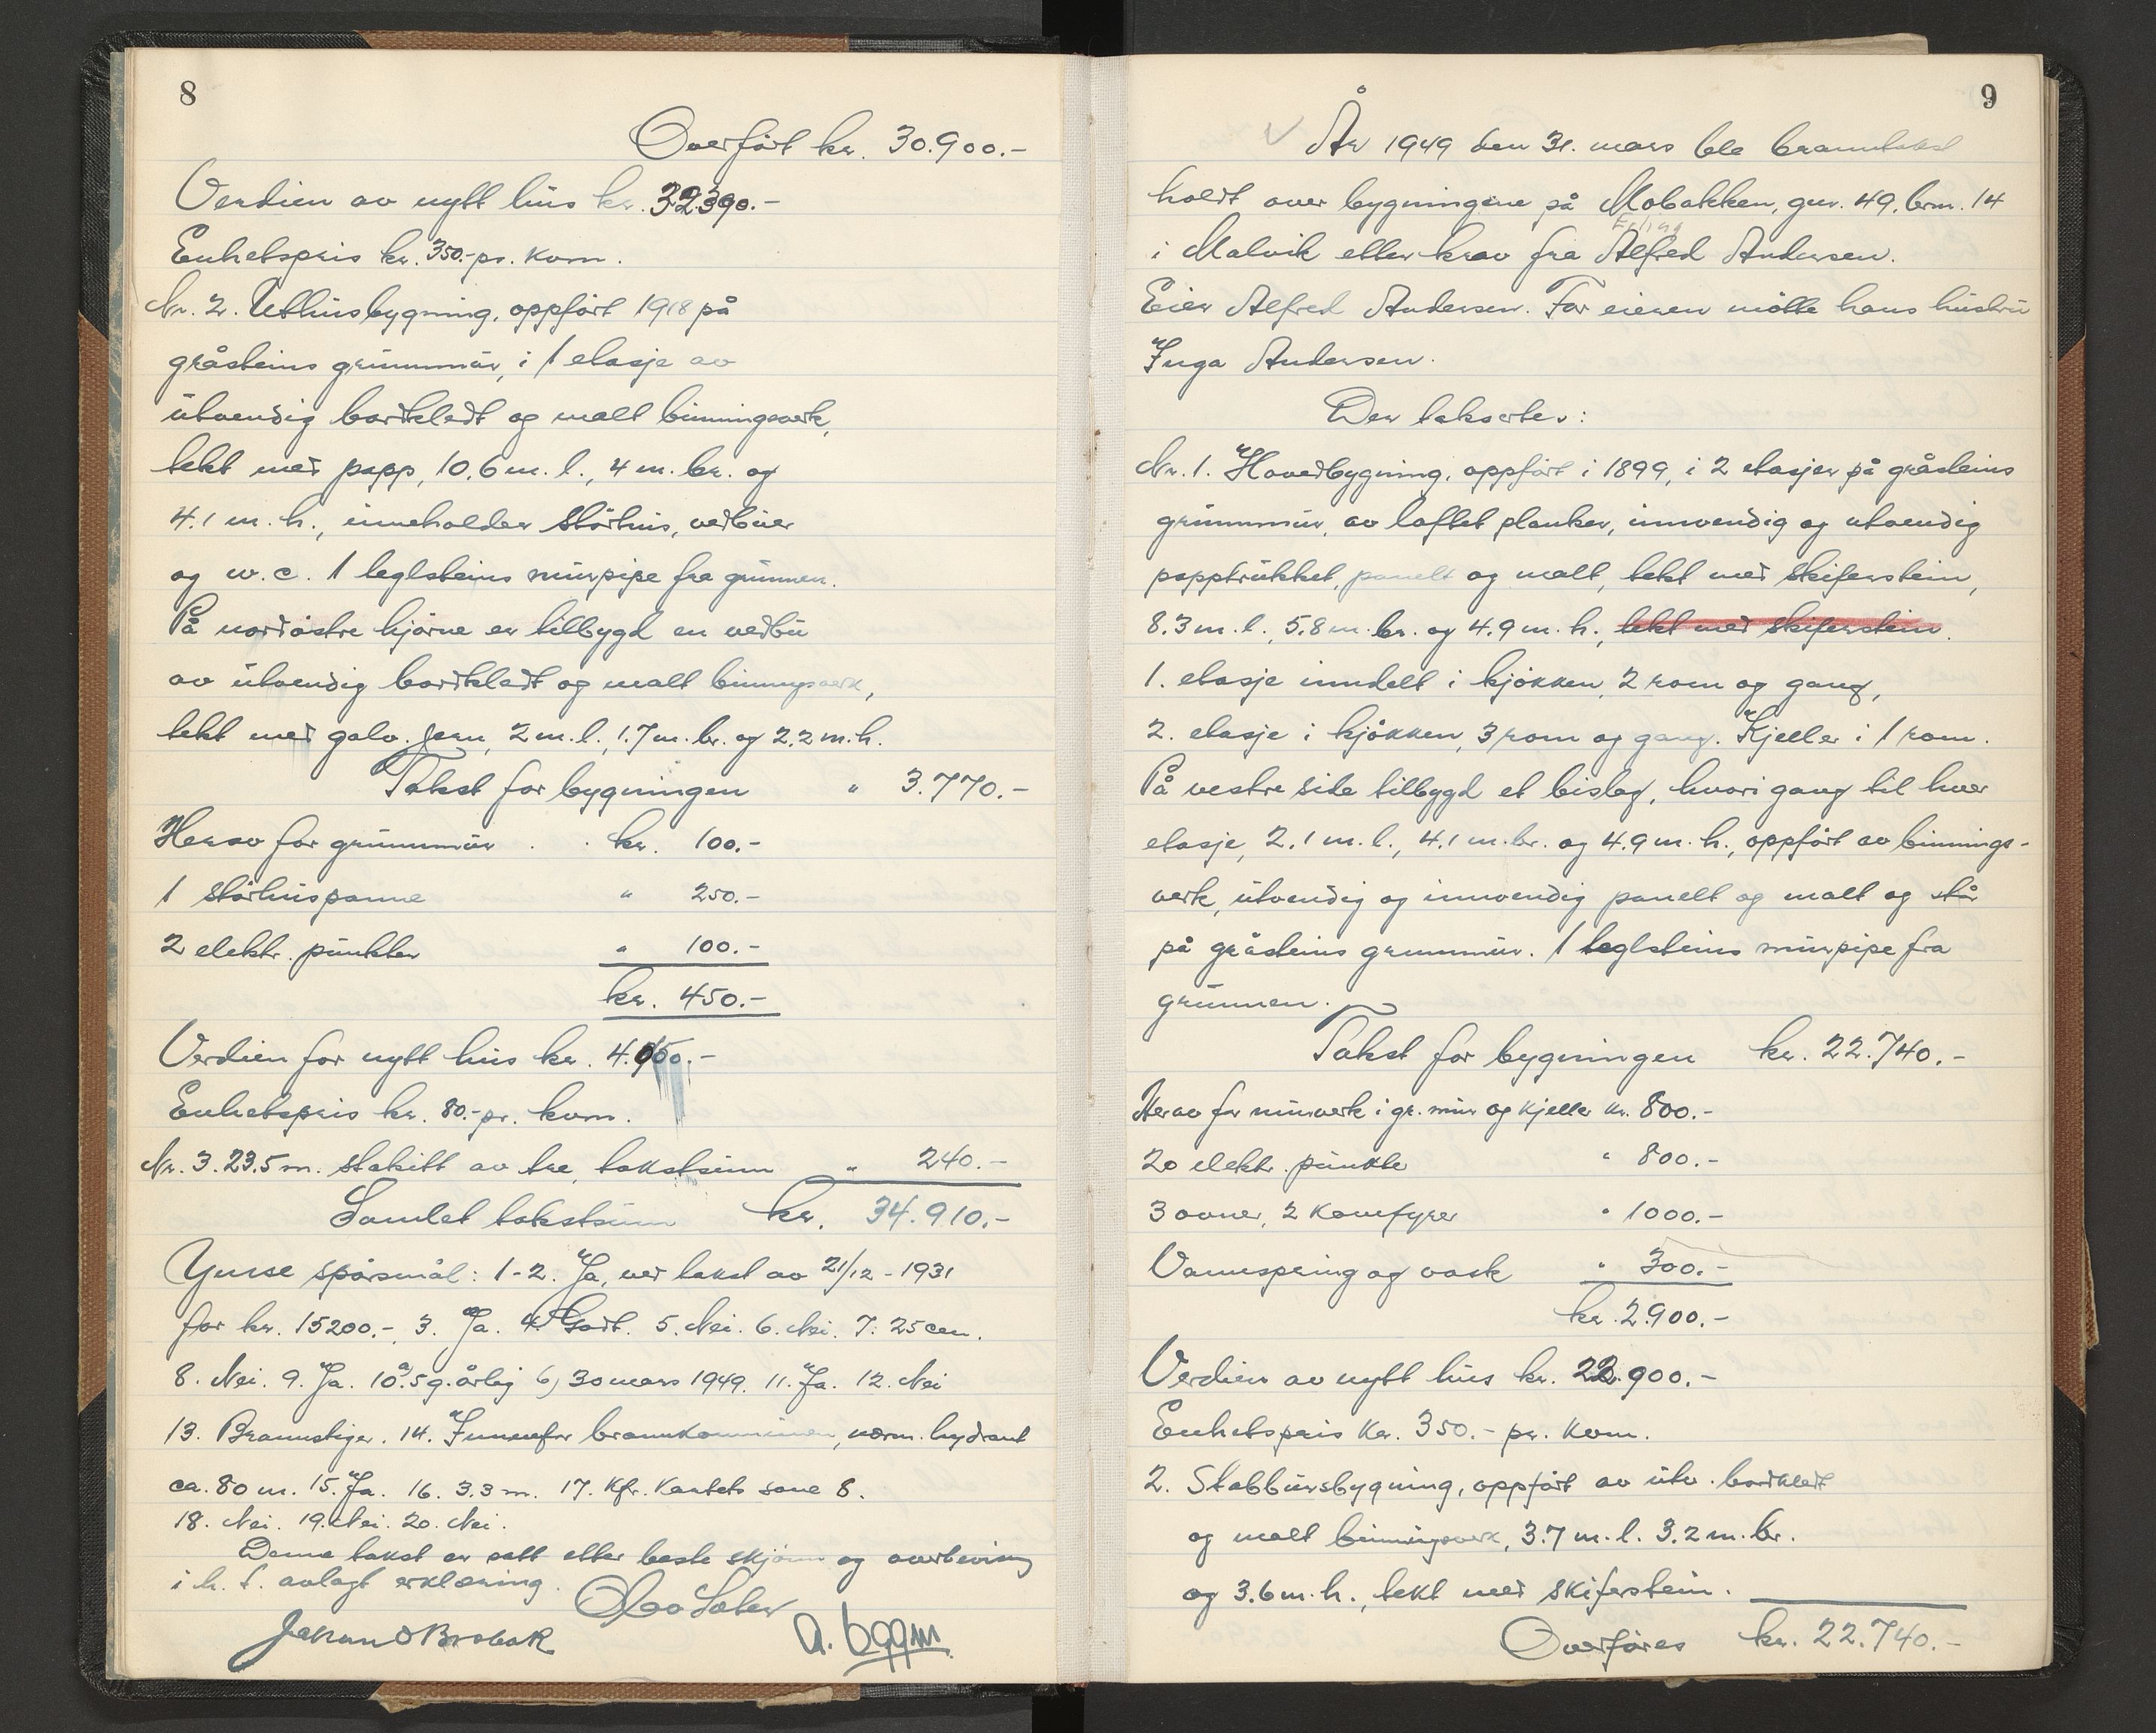 8
Overført kr. 30.900.-
Verdien av nytt hus kr. 32390.-
Enhetspris kr. 350.- pr. kvm.
Nr. 2. Uthusbygning, oppført 1918 på
gråsteins grunnmur, i 1 etasje av
utvendig bordkledt og malt binningsverk,
tekt med papp, 10.6 m. l., 4 m. br. og
4.1 m. h., inneholder størhus, vedbuer
og w.c. 1 teglsteins murpipe fra grunnen.
På nordøstre hjørne er tilbygd en vedbu
av utvendig bordkledt og malt binningsverk,
tekt med galv. jern, 2 m. l., 1.7 m. br. og 2.2 m. h.
Takst for bygningen " 3.770.-
Herav for grunnmur . . kr. 100.-
1 størhuspanne " 250.-
2 elektr. punkter " 100.-
kr. 450.-
Verdien for nytt hus kr. 4.050.-
Enhetspris kr. 80.- pr. kvm.
Nr. 3. 23.5 m. stakitt av tre, takstsum " 240.-
Samlet takstsum kr. 34.910.-
Ymse spørsmål: 1-2. Ja, ved takst av 21/12 - 1931
for kr. 15200.-, 3. Ja. 4. Godt. 5. Nei. 6. Nei. 7: 25 cm.
8. Nei. 9. Ja. 10. a) 5 g. årlig b) 30 mars 1949. 11. Ja. 12. Nei
13. Brannstiger. 14. Innenfor brannkommunen, nærm. hydrant
ca. 80 m. 15. Ja. 16. 3.3 m. 17. Kfr. kartets sone 8.
18. Nei. 19. Nei. 20. Nei.
Denne takst er satt etter beste skjønn og overbevisning
i h. t. avlagt erklæring.
Jakum O Brobak A. Eggen
9
År 1949 den 31. mars ble branntakst
holdt over bygningene på Mobakken, gnr. 49, brn. 14
Erling
i Malvik etter krav fra Alfred Andersen.
Eier Alfred Andersen. For eieren møtte hans hustru
Inga Andersen.
Der takserter:
Nr. 1. Hovedbygning, oppført i 1899, i 2 etasjer på gråsteins
grunnmur, av laftet planker, innvendig og utvendig
papptrukket, panelt og malt, tekt med skiferstein,
8.3 m. l., 5.8 m. br. og 4.9 m. h., tekt med skiferstein.
1. etasje inndelt i kjøkken, 2 rom og gang,
2. etasje i kjøkken, 3 rom og gang. Kjeller i 1 rom.
På vestre side tilbygd et bislag, hvori gang til hver
etasje, 2.1 m. l., 4.1 m. br. og 4.9 m. h., oppført av binnings-
verk, utvendig og innvendig panelt og malt og står
på gråsteins grunnmur. 1 teglsteins murpipe fra
grunnen.
Takst for bygningen kr. 22.740.-
Herav for murverk i gr. mur og kjeller kr. 800.-
20 elektr. punkte " 800.-
3 ovner, 2 komfyrer " 1000.-
Vannspring og vask " 300.-
kr. 2.900.-
Verdien av nytt hus kr. 22.900.-
Enhetspris kr. 350.- pr. kvm.
2. Stabbursbygning, oppført av utv. bordkledt
og malt binningsverk, 3.7 m. l. 3.2 m. br.
og 3.6 m. h., tekt med skiferstein.
Overføres kr. 22.740.-